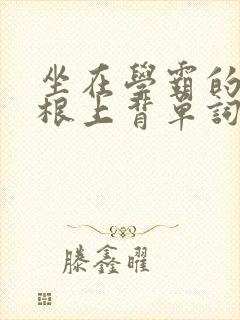 坐在學霸的
根上背單詞
滕鑫曜